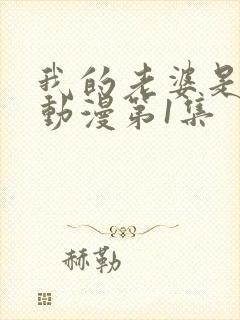 我的老婆是
動漫第1集
赫勒